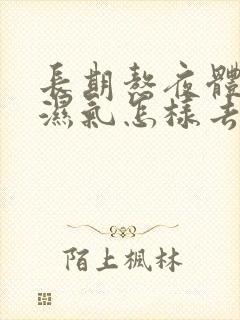 長期熬夜體
濕氣怎樣去
陌上楓林